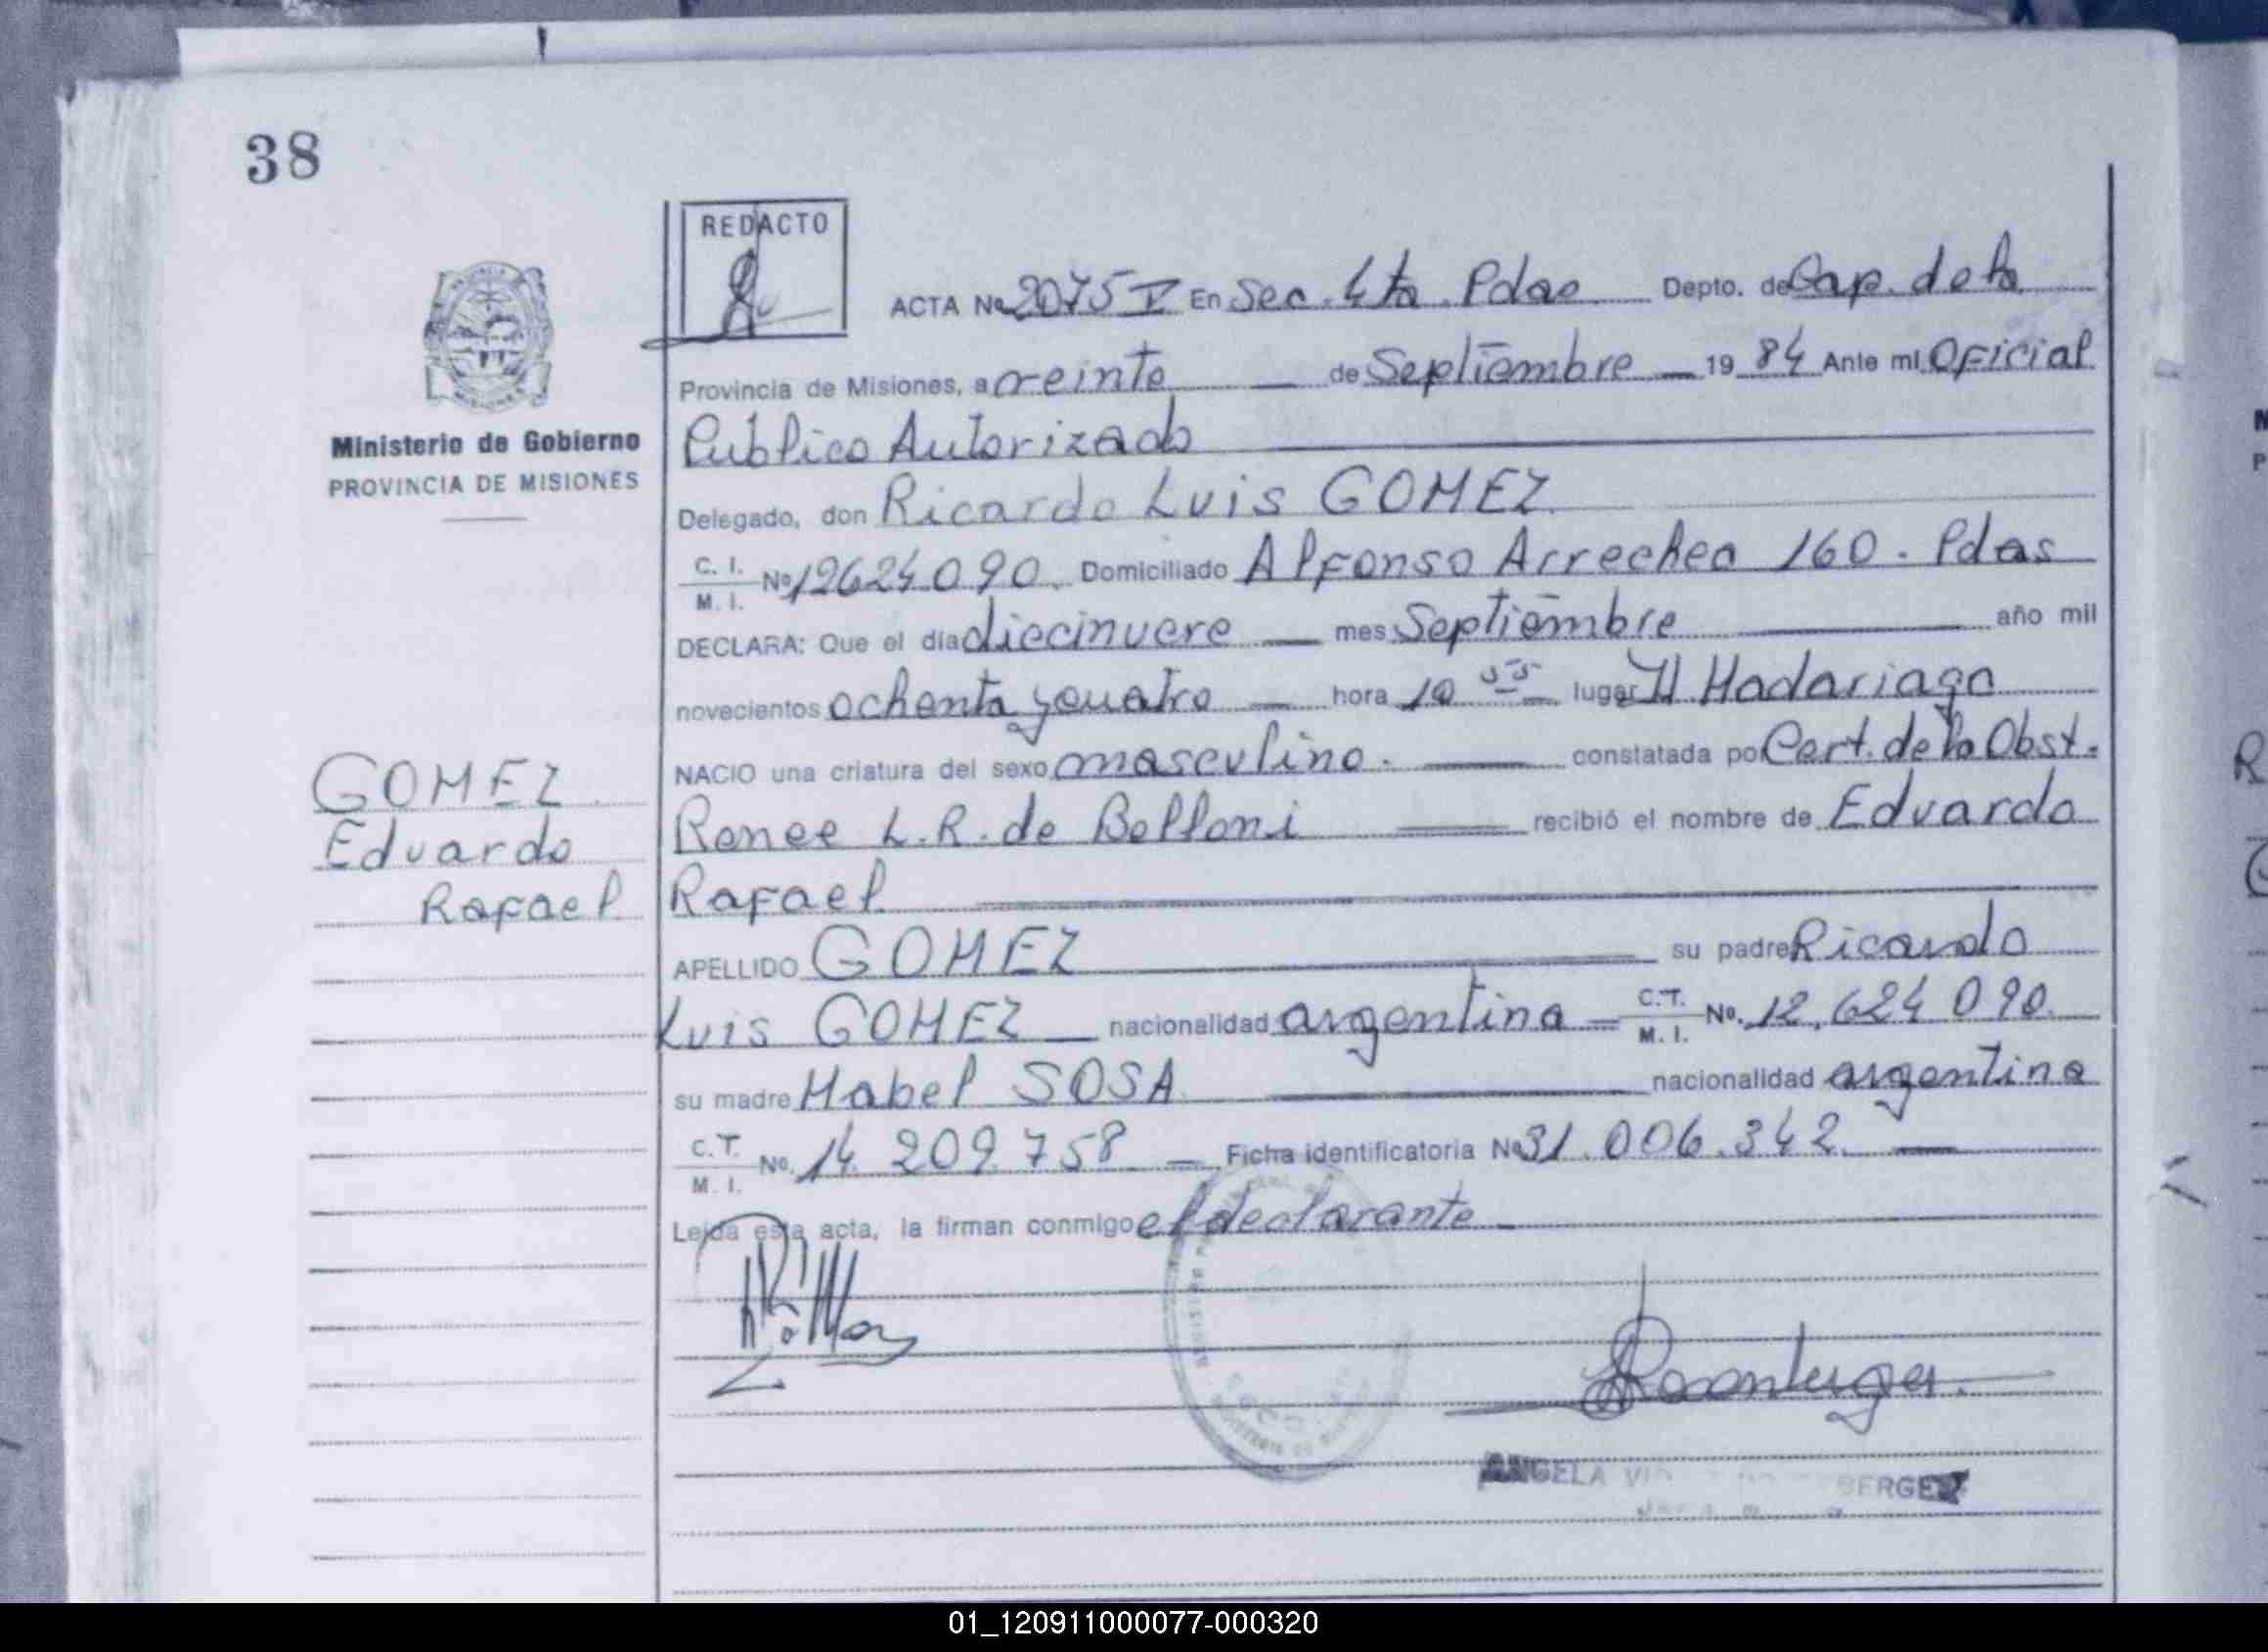 38
REDACTO
ACTA No 2075 V En Sec. 4ta. Pdas. Depto. de Cap. de la
Provincia de Misiones, a veinte de Septiembre 19 84 Ante mí Oficial
Ministerio de Gobierno
PROVINCIA DE MISIONES
Publico Autorizado
Delegado, don Ricardo Luis GOMEZ.
C. I. M. I. No 12624090. Domiciliado Alfonso Arrechea 160. Pdas
DECLARA: Que el día diecinueve mes Septiembre año mil
novecientos ochenta y cuatro hora 10 55 lugar H. Madariaga
NACIO una criatura del sexo masculino. constatada por Cert. de la Obst.
Renee L. R. de Belloni recibió el nombre de Eduardo
Rafael
GOMEZ
Eduardo
Rafael
APELLIDO GOMEZ su padre Ricardo
Luis GOMEZ nacionalidad argentina C.T. M. I. No. 12.624 090.
su madre Mabel SOSA nacionalidad argentina
C.T. M. I. No. 14. 209.758 Ficha identificatoria No 31.006.342.
Leída esta acta, la firman conmigo el declarante
ANGELA BERGER
01_120911000077-000320